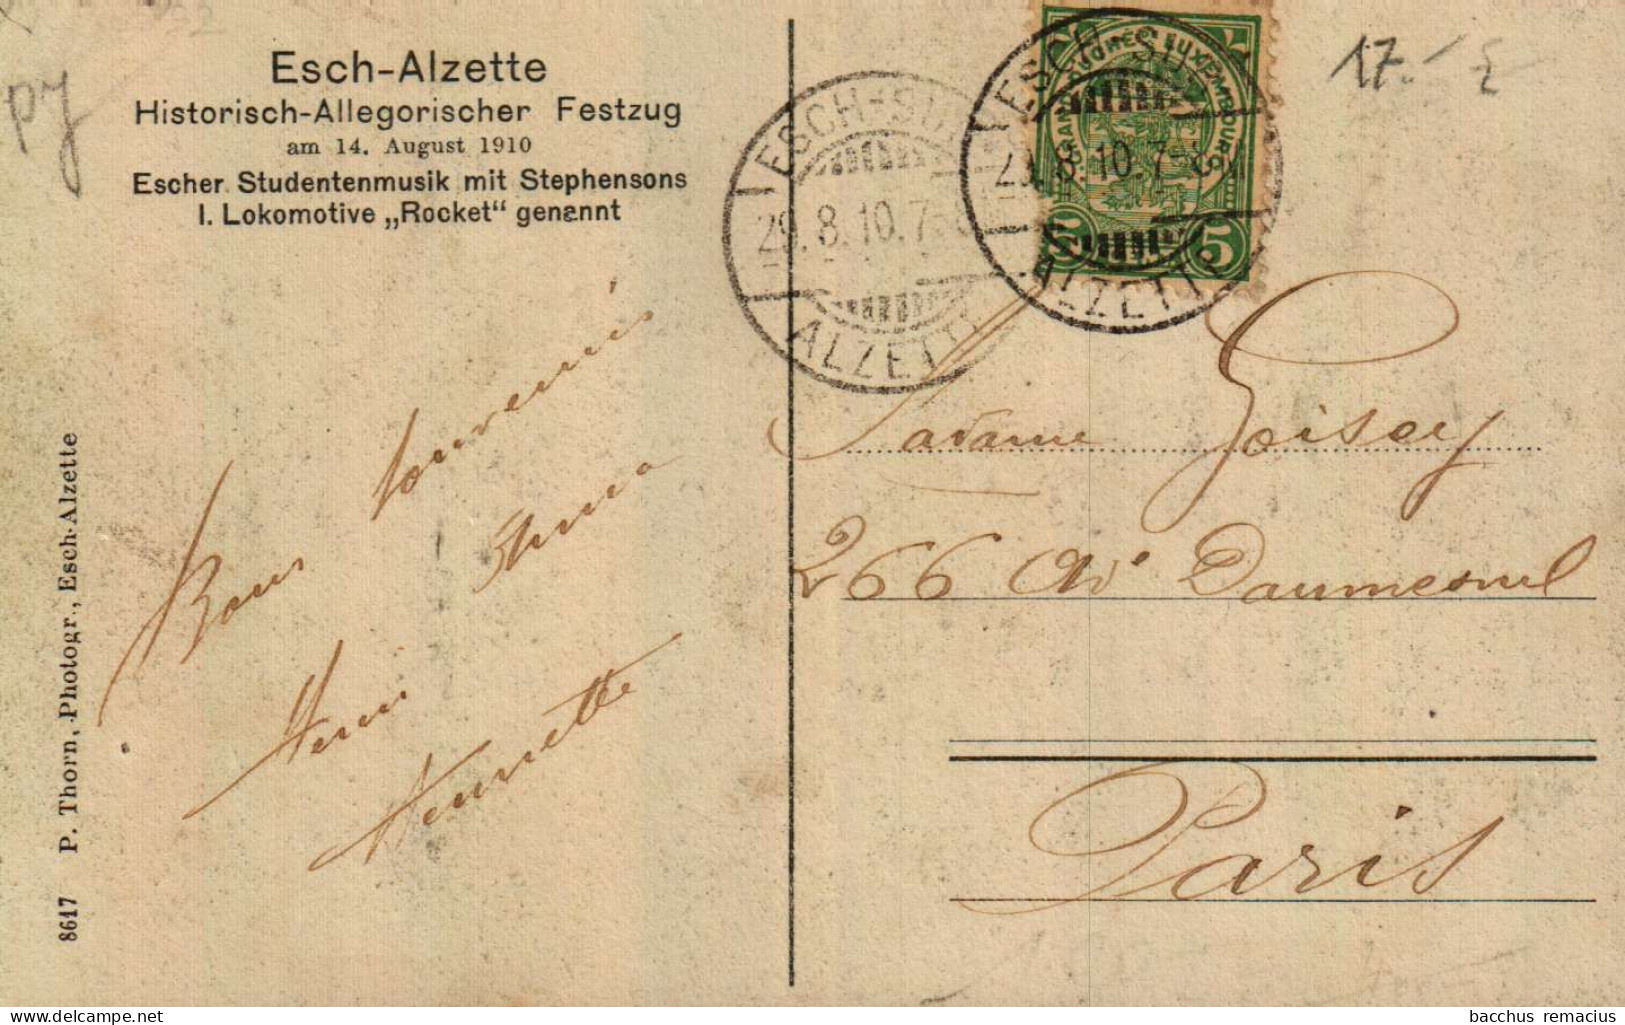 Esch-Alzette
Historisch-Allegorischer Festzug
am 14. August 1910
Escher Studentenmusik mit Stephensons
I. Lokomotive „Rocket“ genannt
Bons souvenirs
Anna
Henri
Henriette
P. Thorn, Photogr., Esch-Alzette
8617
ESCH-SUR
29.8.10.7-8
ALZETTE
ESCH-SUR
29.8.10.7-8
ALZETTE
GRAND DUCHE DE LUXEMBOURG
5 5
17.-
py
Madame Goisey
266 Av. Daumesnil
Paris
delcampe.net
bacchus remacius